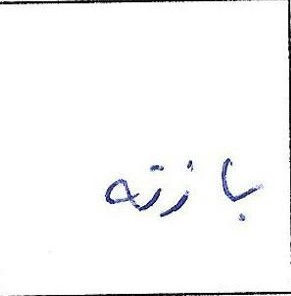 بازته